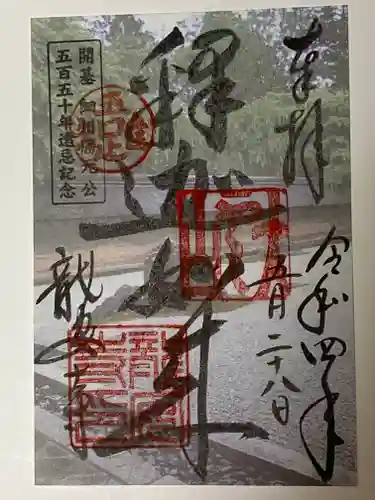 奉拝
令和四年
五月二十八日
釋迦如来
開基 細川勝元公
五百五十年遠忌記念
龍安寺